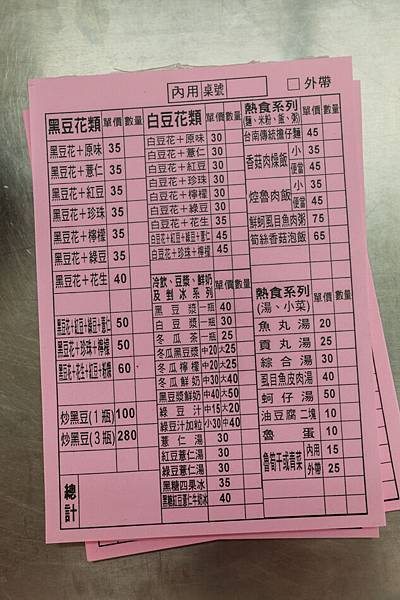 內用 桌號 □外帶
黑豆花類 單價 數量
黑豆花+原味 35
黑豆花+薏仁 35
黑豆花+紅豆 35
黑豆花+珍珠 35
黑豆花+檸檬 35
黑豆花+綠豆 35
黑豆花+花生 40
黑豆花+紅豆+綠豆+薏仁 50
黑豆花+珍珠+檸檬 50
60
炒黑豆(1瓶) 100
炒黑豆(3瓶) 280
總計
白豆花類 單價 數量
白豆花+原味 30
白豆花+薏仁 30
白豆花+紅豆 30
白豆花+珍珠 30
白豆花+檸檬 30
白豆花+綠豆 30
白豆花+花生 35
白豆花+紅豆+綠豆+薏仁 45
白豆花+珍珠+檸檬 45
冷飲、豆漿、鮮奶
及剉冰系列 單價 數量
黑豆漿 一瓶 40
白豆漿 一瓶 30
冬瓜茶 一瓶 25
冬瓜黑豆漿 中20大25
冬瓜檸檬 中20大25
冬瓜鮮奶 中30大40
黑豆漿鮮奶 中40大50
綠豆汁 中15大20
綠豆汁加粒 小30中40
薏仁湯 30
紅豆薏仁湯 30
綠豆薏仁湯 30
黑糖四果冰 35
黑糖紅豆薏仁牛奶冰 40
熱食系列
(麵、米粉、蛋、粥) 單價 數量
台南傳統擔仔麵 45
香菇肉燥飯 小 35
便當 45
焢魯肉飯 小 35
便當 45
鮮蚵虱目魚肉粥 75
筍絲香菇泡飯 65
熱食系列
(湯、小菜) 單價 數量
魚丸湯 20
貢丸湯 25
綜合湯 30
虱目魚皮肉湯 40
蚵仔湯 50
油豆腐二塊 10
魯蛋 10
魯筍干或青菜 內用 15
外帶 25